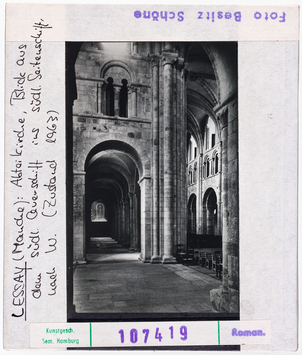 Foto Besitz Schöne
LESSAY (Manche): Abteikirche, Blick aus
dem südl. Querschiff ins südl. Seitenschiff
nach W. (Zustand 1963)
Kunstgesch.
Sem. Hamburg
107419
Roman.